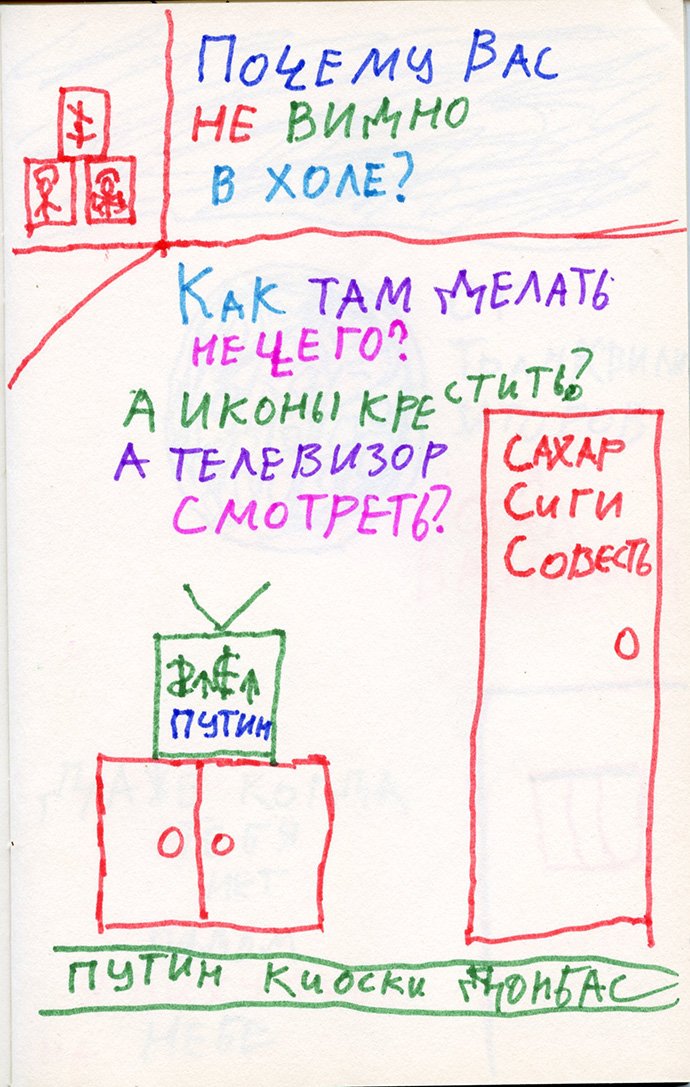 Почему Вас
не видно
в холе?
Как там делать
нечего?
А иконы крестить?
А телевизор
смотреть?
Сахар
Сиги
Совесть
Путин
Путин Киоски Донбас